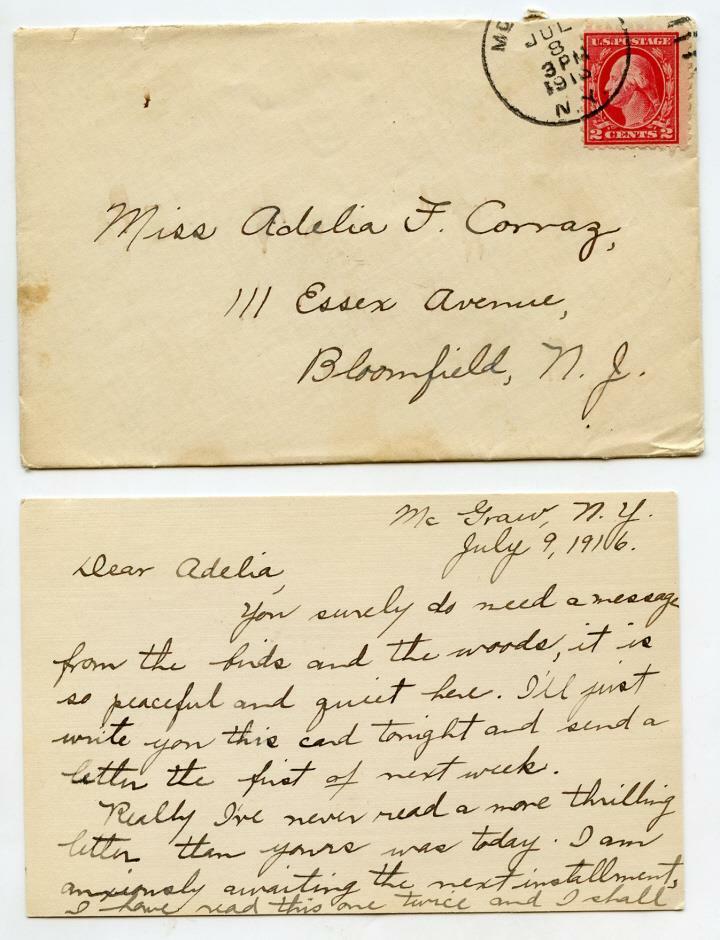 JUL
8
3 PM
N.Y.
U.S. POSTAGE
2 CENTS 2
Miss Adelia F. Corraz,
111 Essex Avenue,
Bloomfield, N. J.
Mc Graw, N. Y.
July 9, 1916.
Dear Adelia,
You surely do need a message
from the birds and the woods, it is
so peaceful and quiet here. I'll just
write you this card tonight and send a
letter the first of next week.
Really I've never read a more thrilling
letter than yours was today. I am
anxiously awaiting the next installment,
I have read this one twice and I shall